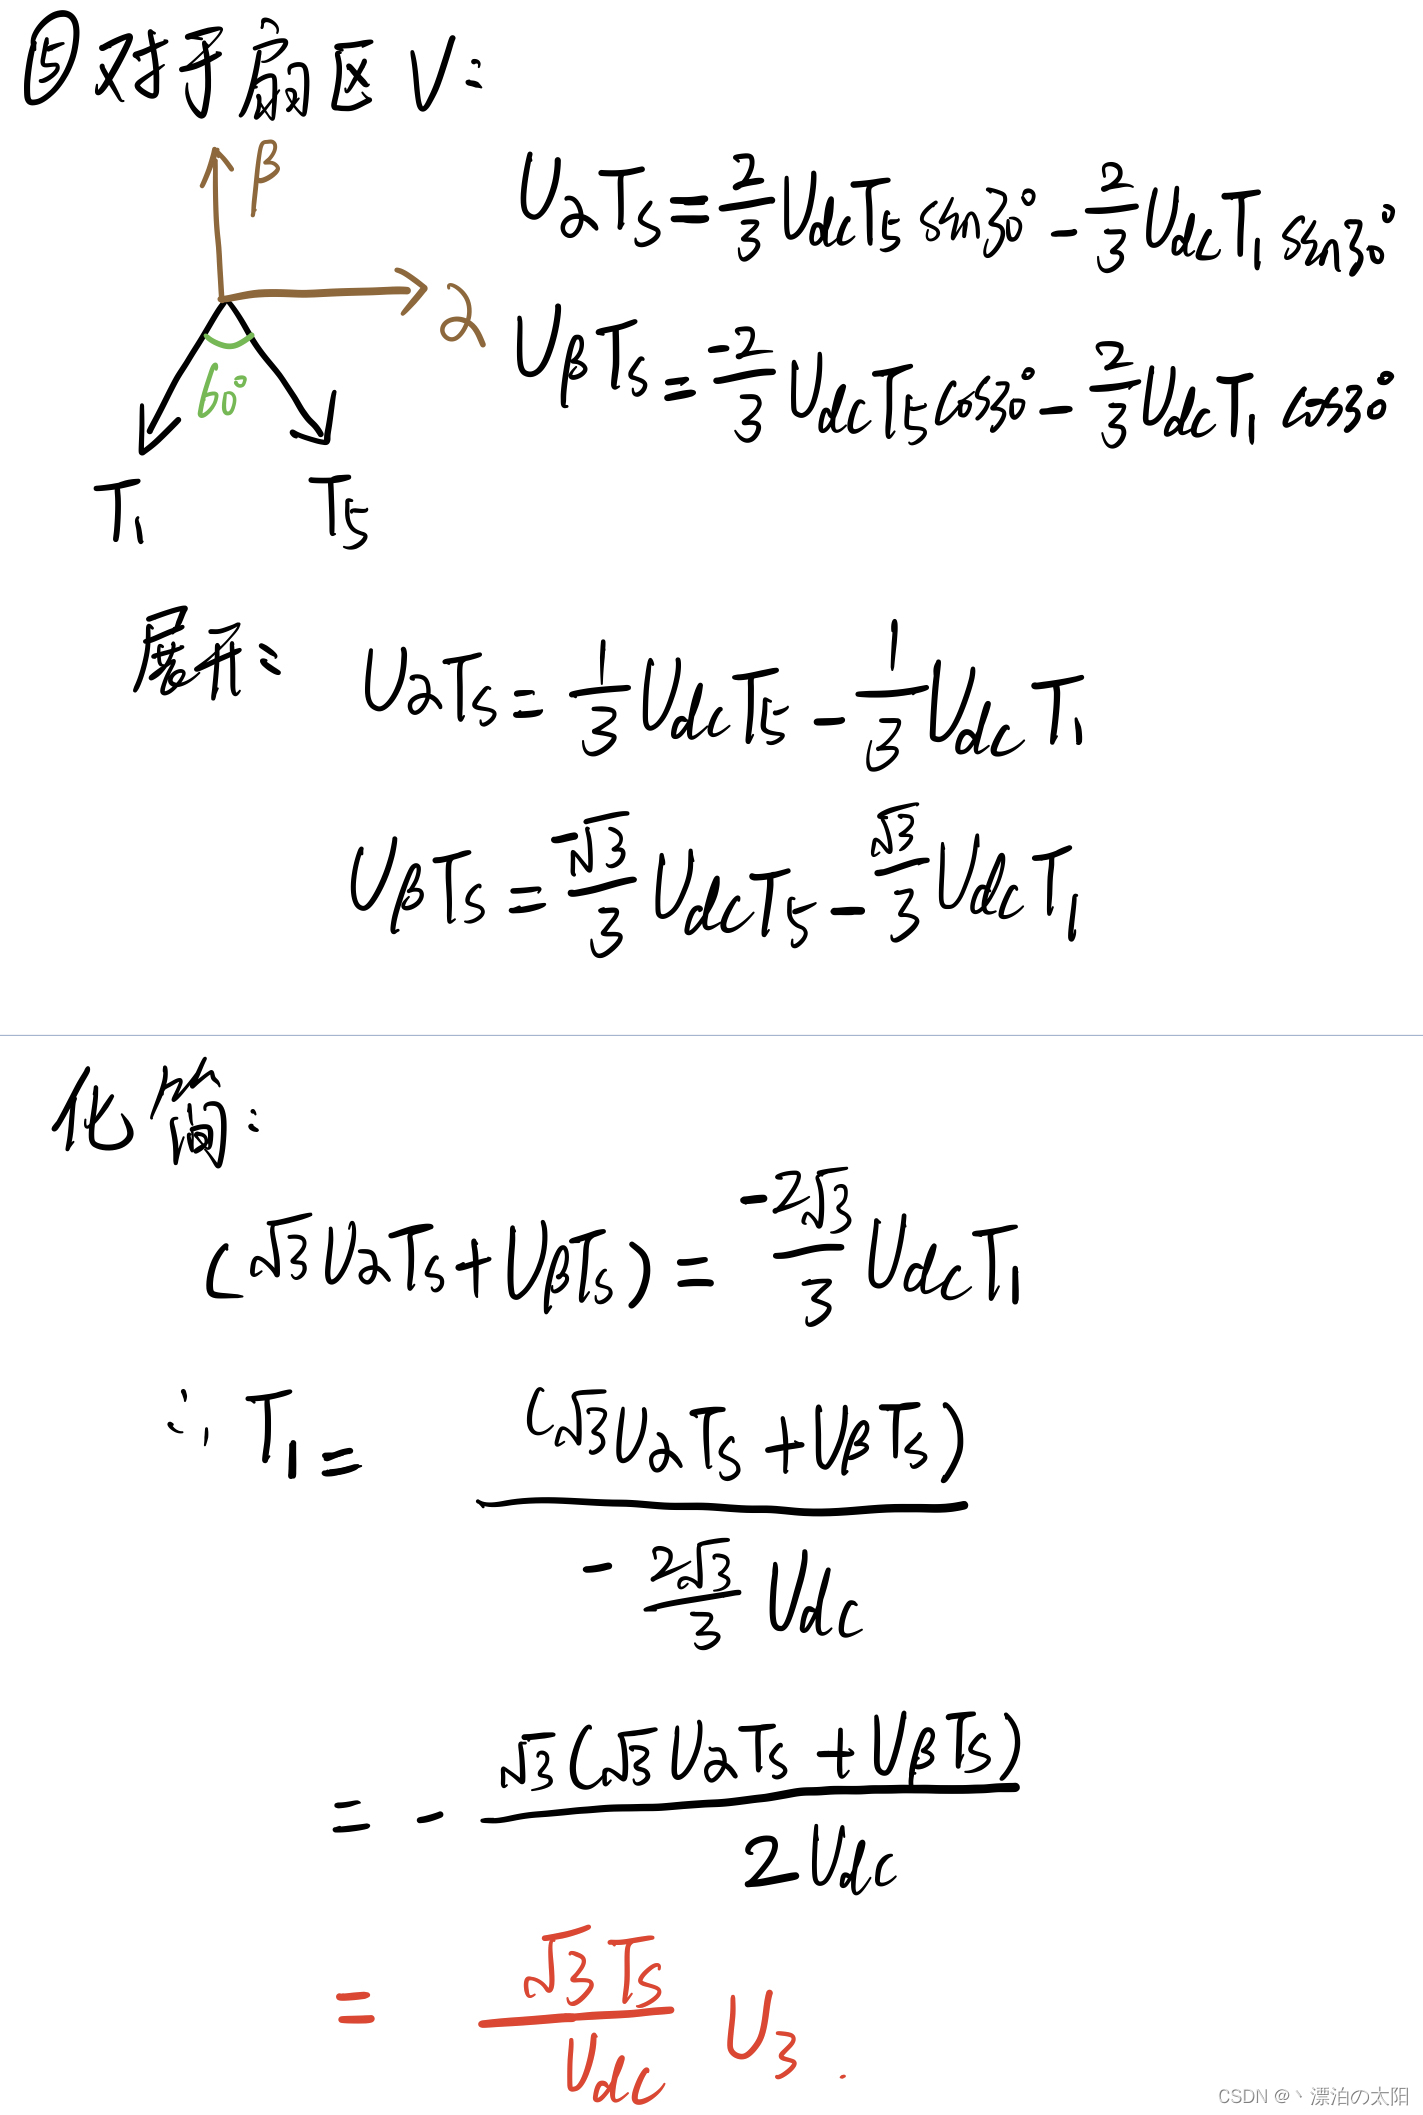 ⑤对于扇区 V:
β
α
60°
T₁ T₅
UαTs = 2/3 UdcT₅ sin30° - 2/3 UdcT₁ sin30°
UβTs = -2/3 UdcT₅ cos30° - 2/3 UdcT₁ cos30°
展开: UαTs = 1/3 UdcT₅ - 1/3 UdcT₁
UβTs = -√3/3 UdcT₅ - √3/3 UdcT₁
化简:
(√3UαTs + UβTs) = -2√3/3 UdcT₁
∴, T₁ = (√3UαTs + UβTs) / - 2√3/3 Udc
= - √3(√3UαTs + UβTs) / 2Udc
= √3Ts/Udc U₃.
CSDN @丶漂泊の太阳